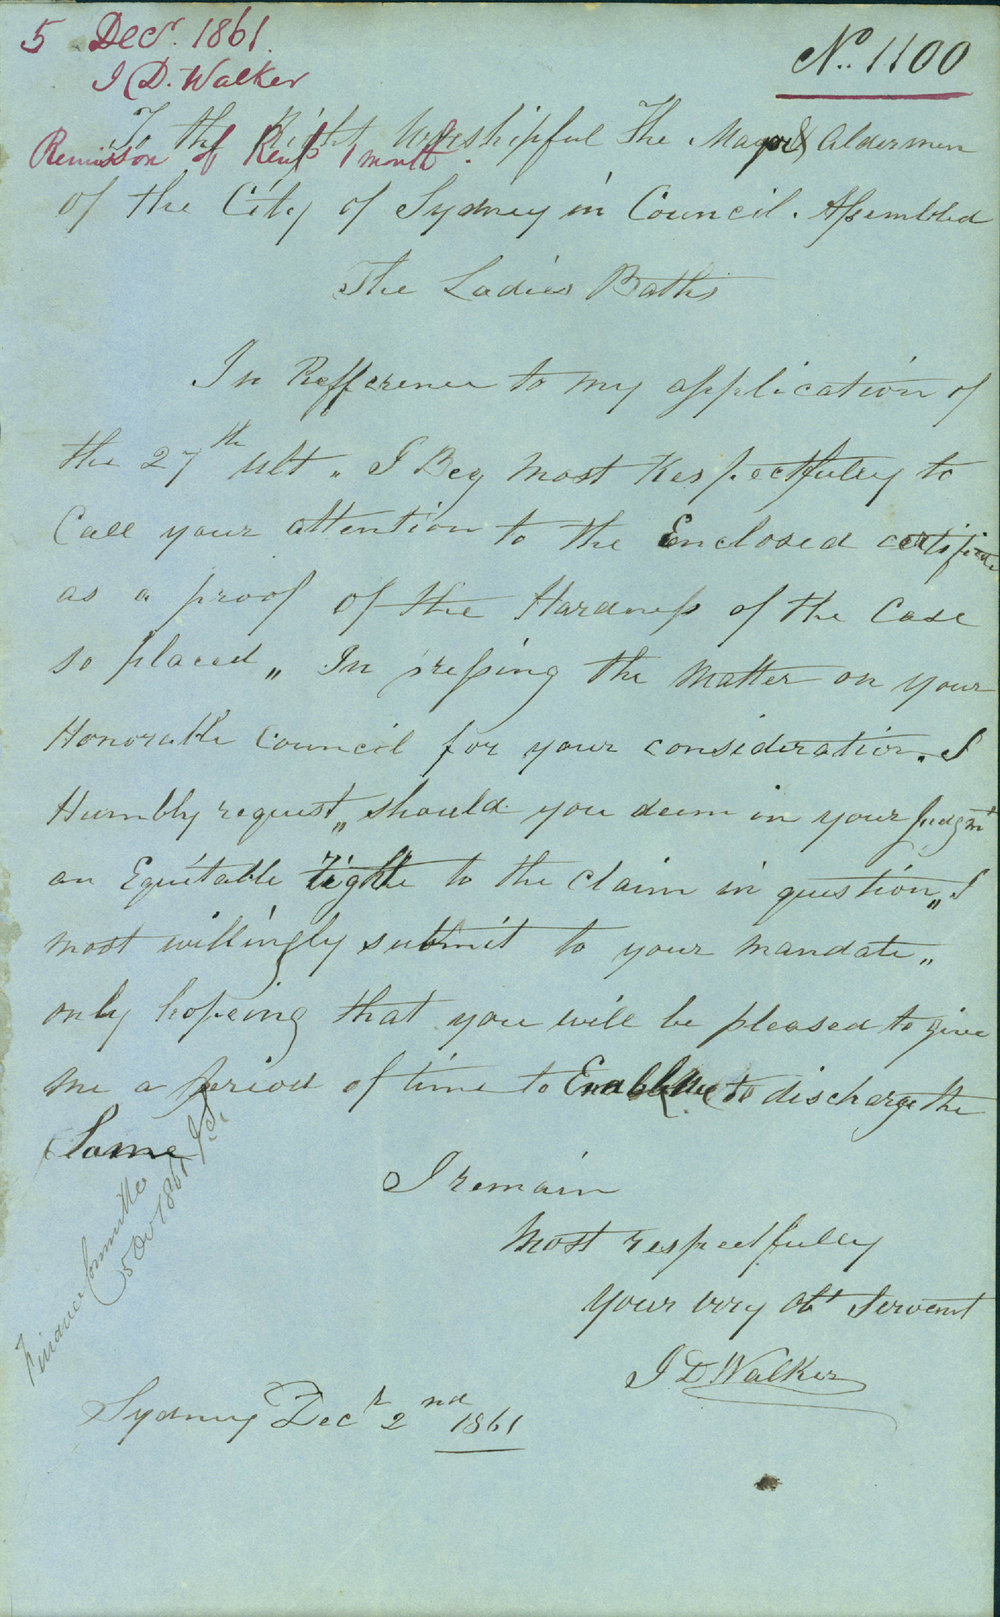 5 Decr. 1861.
J D. Walker
No. 1100
To the Right Worshipful The Mayor & Aldermen
Remission of Rent 1 month.
of the City of Sydney in Council. Assembled
The Ladies Baths
In Refference to my application of
the 27th ult. I Beg most Respectfully to
Call your attention to the Enclosed certificate
as a proof of the Hardness of the Case
so placed„ In pressing the matter on your
Honorable Council for your consideration. I
Humbly request„ should you deem in your Judgmt
an Equitable right to the claim in question„ I
most willingly submit to your mandate„
only hopeing that you will be pleased to give
me a period of time to Enable me to discharge the
Same
I remain
Most respectfully
your very obt Servent
J D Walker
Finance Committee
5 Dec 1861
Sydney Decr 2nd 1861